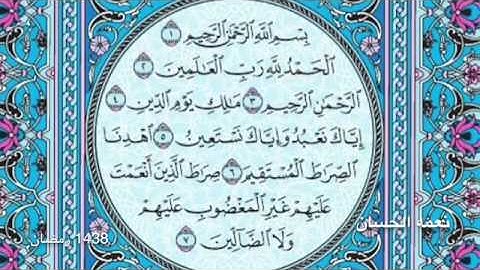 بِسْمِ اللَّهِ الرَّحْمَٰنِ الرَّحِيمِ ١
الْحَمْدُ لِلَّهِ رَبِّ الْعَالَمِينَ ٢
الرَّحْمَٰنِ الرَّحِيمِ ٣ مَالِكِ يَوْمِ الدِّينِ ٤
إِيَّاكَ نَعْبُدُ وَإِيَّاكَ نَسْتَعِينُ ٥ اهْدِنَا
الصِّرَاطَ الْمُسْتَقِيمَ ٦ صِرَاطَ الَّذِينَ أَنْعَمْتَ
عَلَيْهِمْ غَيْرِ الْمَغْضُوبِ عَلَيْهِمْ
وَلَا الضَّالِّينَ ٧
رمضان 1438